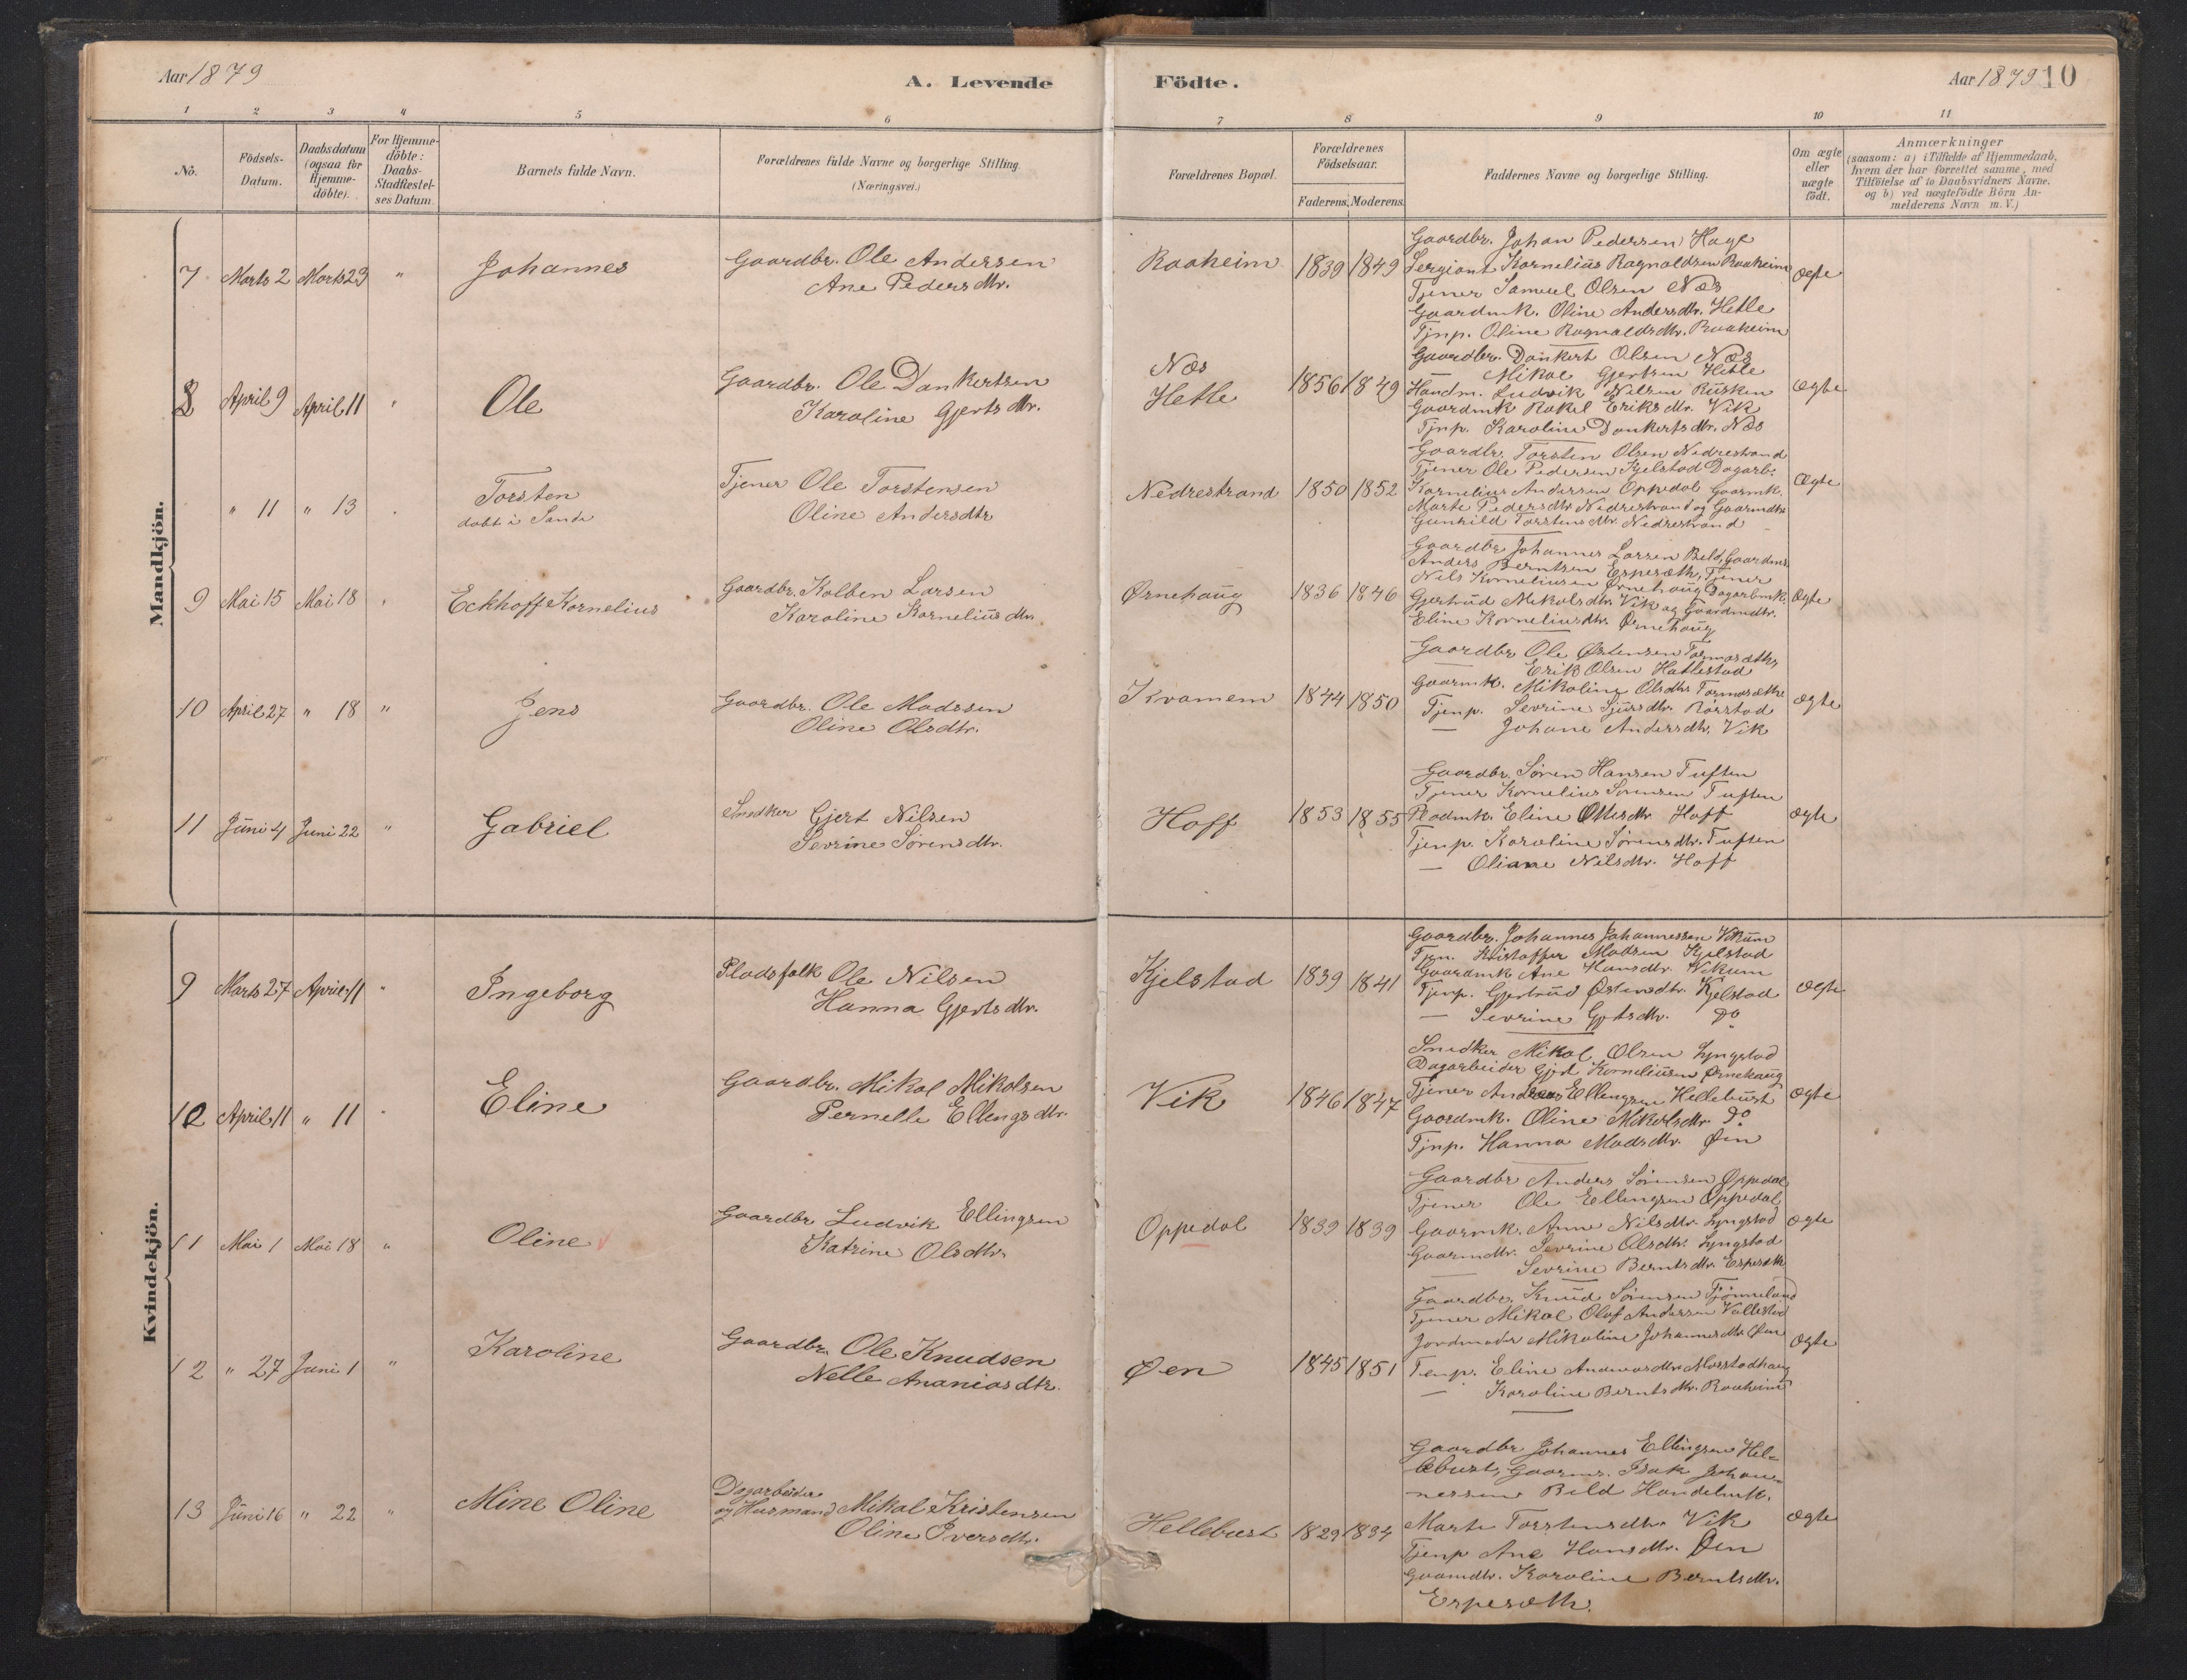 Aar 1879
A. Levende
Födte.
Aar 1879
10
1 2 3 4 5 6 7 8 9 10 11
No.
Födsels-
Datum.
Daabsdatum
(ogsaa for
Hjemme-
döbte).
For Hjemme-
döbte:
Daabs-
Stadfæstel-
ses Datum.
Barnets fulde Navn.
Forældrenes fulde Navne og borgerlige Stilling.
(Næringsvei.)
Forældrenes Bopæl.
Forældrenes
Födselsaar.
Faderens. Moderens.
Faddernes Navne og borgerlige Stilling.
Om ægte
eller
uægte
födt.
Anmærkninger
(saasom: a) i Tilfælde af Hjemmedaab,
hvem der har forrettet samme, med
Tilföielse af to Daabsvidners Navne,
og b) ved uægtefödte Börn An-
melderens Navn m. V.)
Mandkjön.
7 Marts 2 Marts 23 " Johannes
Gaardbr. Ole Andersen
Ane Pedersdtr.
Raaheim 1839 1849
Gaardbr. Johan Pedersen Hage
Sergiant Kornelius Ragnaldsen Raaheim
Tjener Samuel Olsen Næs
Gaardmk. Oline Andersdtr. Hetle
Tjnp. Oline Ragnaldsdtr. Raaheim
ægte
8 April 9 April 11 " Ole
Gaardbr. Ole Dankertsen
Karoline Gjertsdtr.
Næs
Hetle 1856 1849
Gaardbr. Dankert Olsen Næs
— Mikal Gjertsen Hetle
Huudm. Ludvik Nilsen Rusken
Gaardmk Rakel Eriksdtr. Vik
Tjnp. Karoline Dankertsdtr. Næs
ægte
" 11 " 13 . Torsten
døbt i Sande
Tjener Ole Torstensen
Oline Andersdtr
Nedrestrand 1850 1852
Gaardbr. Torsten Olsen Nedrestrand
Tjener Ole Pedersen Kjelstad Dagarb:
Kornelius Andersen Oppedal Gaarmk.
Marte Pedersdtr Nedrestrand og Gaarmdtr
Gunhild Torstensdtr. Nedrestrand
Ægte
9 Mai 15 Mai 18 " Eckhoff Kornelius
Gaardbr. Kolben Larsen
Karoline Korneliusdtr.
Ørnehaug 1836 1846
Gaardbr Johannes Larsen Beld, Gaardms
Anders Berntsen Espesæth, Tjener
Nils Korneliusen Ørnehaug Dagarbmk.
Gjertrud Mikalsdtr. Vik og Gaardmdtr.
Eline Korneliusdtr. Ørnehaug
Ægte
10 April 27 " 18 " Jens
Gaardbr. Ole Madssen
Oline Olsdtr.
Kvamem 1844 1850
Gaardbr Ole Østensen Tormosæth,
— Erik Olsen Hatlestad
Gaarmk. Mikoline Olsdtr. Tormosæthe
Tjenp. Sevrine Sjursdtr. Rørstad
— Johane Andersdtr. Vik
ægte
11 Juni 4 Juni 22 " Gabriel
Snedker Gjert Nilsen
Sevrine Sørensdtr.
Hoff 1853 1855
Gaardbr. Søren Hansen Tuften
Tjener Kornelius Sorensen Tuften
Pladmk. Eline Ottesdtr. Hoff
Tjenp. Karoline Sørensdtr. Tuften
— Oliane Nilsdtr. Hoff
ægte
Kvindekjön.
9 Marts 27 April 11 " Ingeborg
Pladsfolk Ole Nilsen
Hanna Gjertsdtr.
Kjelstad 1839 1841
Gaardbr. Johannes Johannessen Vikum
Tjen. Kristoffer Madsen Kjelstad
Gaardmk Ane Hansdtr. Vikum
Tjenp. Gjertrud Østensdtr. Kjelstad
— Sevrine Gjertsdtr. Do
ægte
10 April 11 " 11 " Eline
Gaardbr. Mikal Mikalsen
Pernelle Ellingsdtr.
Vik 1846 1847
Snedker Mikal Olsen Lyngstad
Dagarbeider Gjert Korneliusen Ørnehaug
Tjener Andreas Ellingsen Hellebust
Gaardmk. Oline Mikalsdtr. Do
Tjnp. Hanna Madsdtr. Øen
Ægte
11 Mai 1 Mai 18 " Oline
Gaardbr Ludvik Ellingsen
Katrine Olsdtr.
Oppedal 1839 1839
Gaardbr Anders Sørensen Oppedal
Tjener Ole Ellingsen Oppedal
Gaarmk. Anne Nilsdtr. Lyngstad
Gaarmdtr. Sevrine Olsdtr. Lyngstad
— Sevrine Berntsdtr. Espesæth
ægte
12 " 27 Juni 1 " Karoline
Gaardbr. Ole Knudsen
Nelle Ananiasdtr.
Øen 1845 1851
Gaardbr. Knud Sørensen Tjønneland
Tjener Mikal Olaf Andersen Vallestad
Jordmoder Mikaline Johannesdtr. Øen
Tenp. Eline Ananiasdtr. Morstadhaug
— Karoline Berntsdtr. Raaheim
ægte
13 Juni 16 " 22 " Mine Oline
Dagarbeider
og Husmand Mikal Kristensen
Oline Iversdtr.
Hellebust 1829 1834
Gaardbr Johannes Ellingsen Hel-
lebust, Gaarms. Isak Johan-
nessen Beld Handelsmk.
Marte Torstensdtr. Vik
Tjenp Ane Hansdtr. Øen
Gaarmdtr. Karoline Berntsdtr.
Espesæth.
ægte